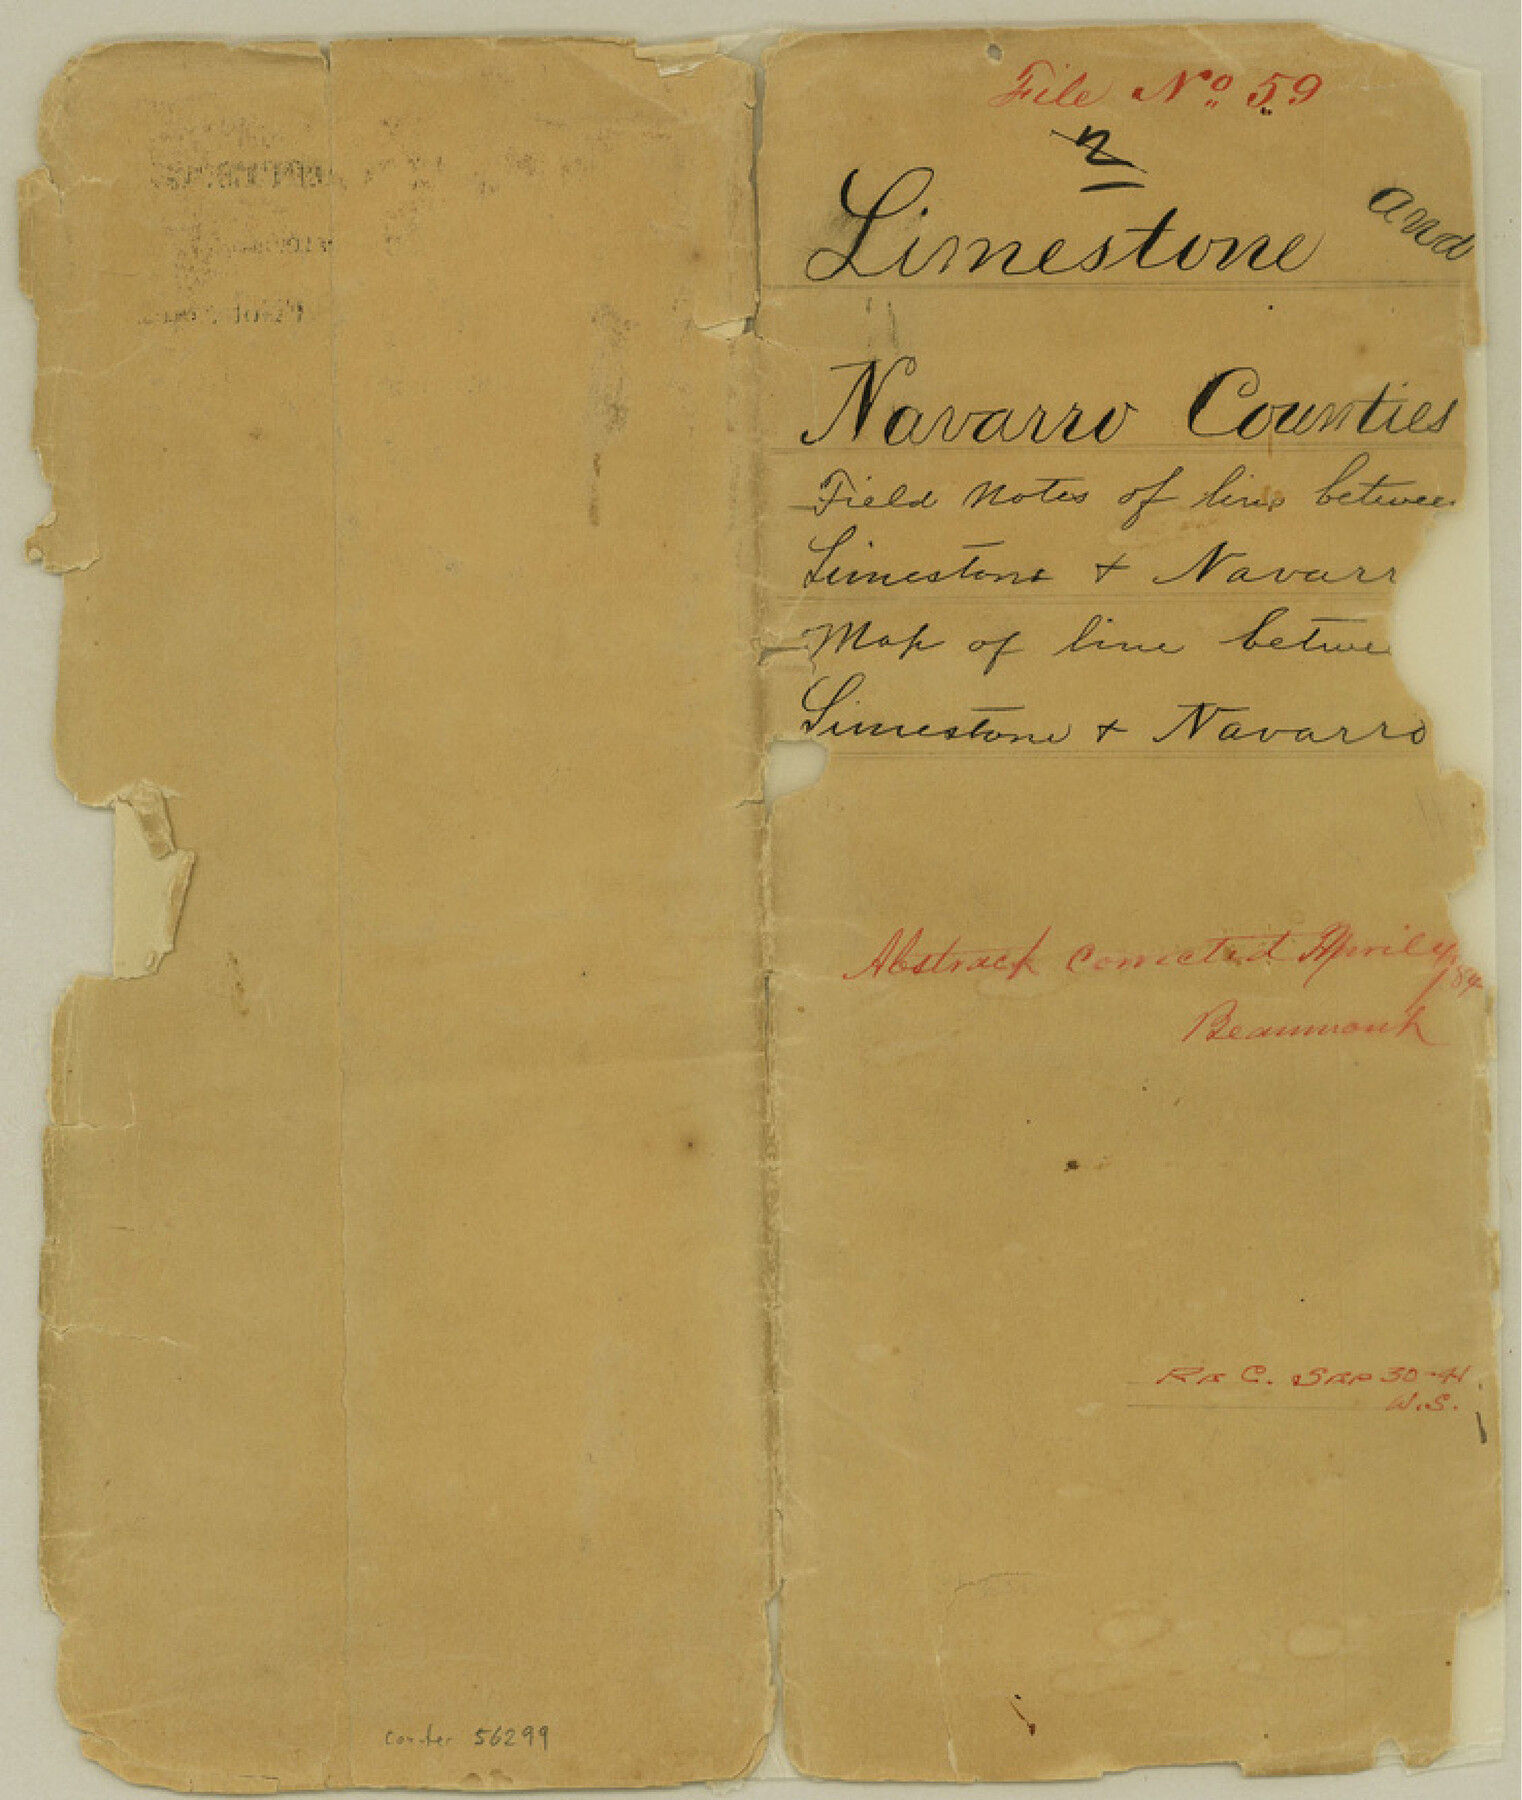 File No 59
Limestone and
Navarro Counties
Field Notes of line betwee
Limestone + Navarr
Map of line betwe
Limestone + Navarro
Abstrack Corrected April 4,
/84
Beaumont
Re C. Sep 30-41
W.S.
counter 56299